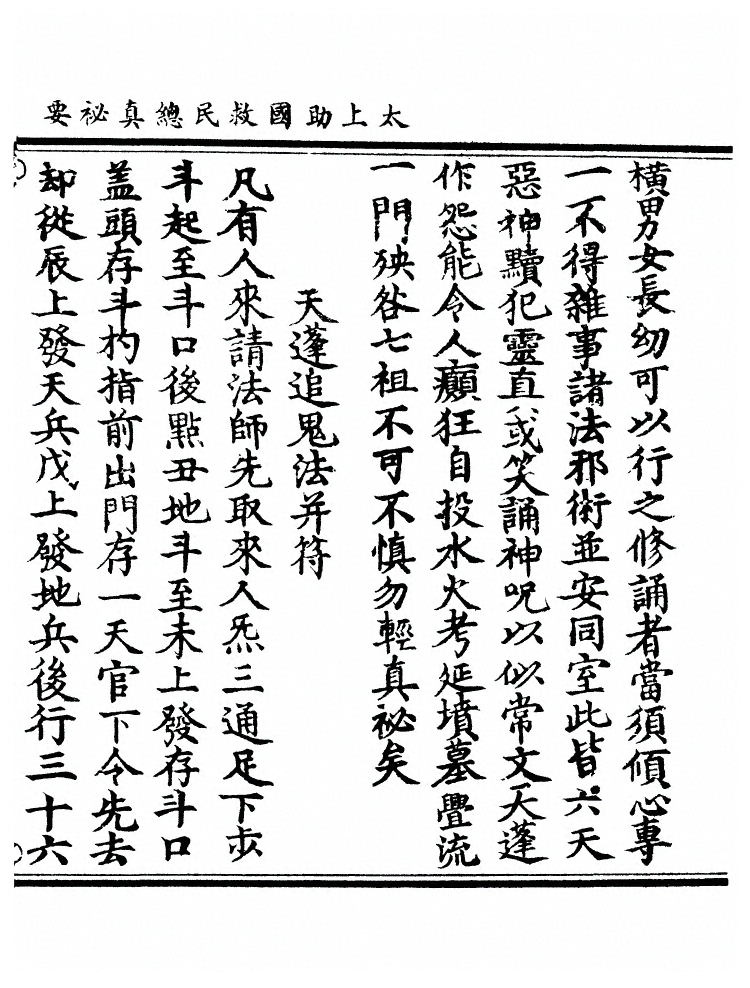 太上助國救民總真祕要
橫男女長幼可以行之修誦者當須傾心專
一不得雜事諸法邪術並安同室此皆六天
惡神黷犯靈直或笑誦神呪以似常文天蓬
作怨能令人癲狂自投水火考延墳墓疊流
一門殃咎七祖不可不慎勿輕真祕矣
天蓬追鬼法并符
凡有人來請法師先取來人炁三通足下步
斗起至斗口後點丑地斗至未上發存斗口
盖頭存斗杓指前出門存一天官下令先去
却從辰上發天兵戊上發地兵後行三十六